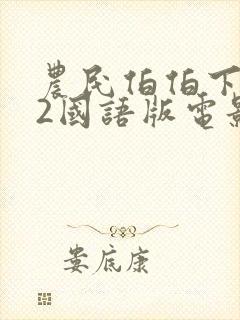 農民伯伯下
2國語版電影
娄底康